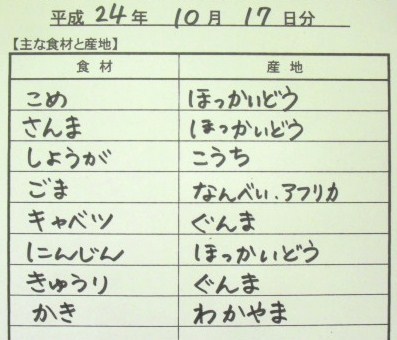 平成 24 年 10 月 17 日分
【主な食材と産地】
食材 産地
こめ ほっかいどう
さんま ほっかいどう
しょうが こうち
ごま なんべい、アフリカ
キャベツ ぐんま
にんじん ほっかいどう
きゅうり ぐんま
かき わかやま